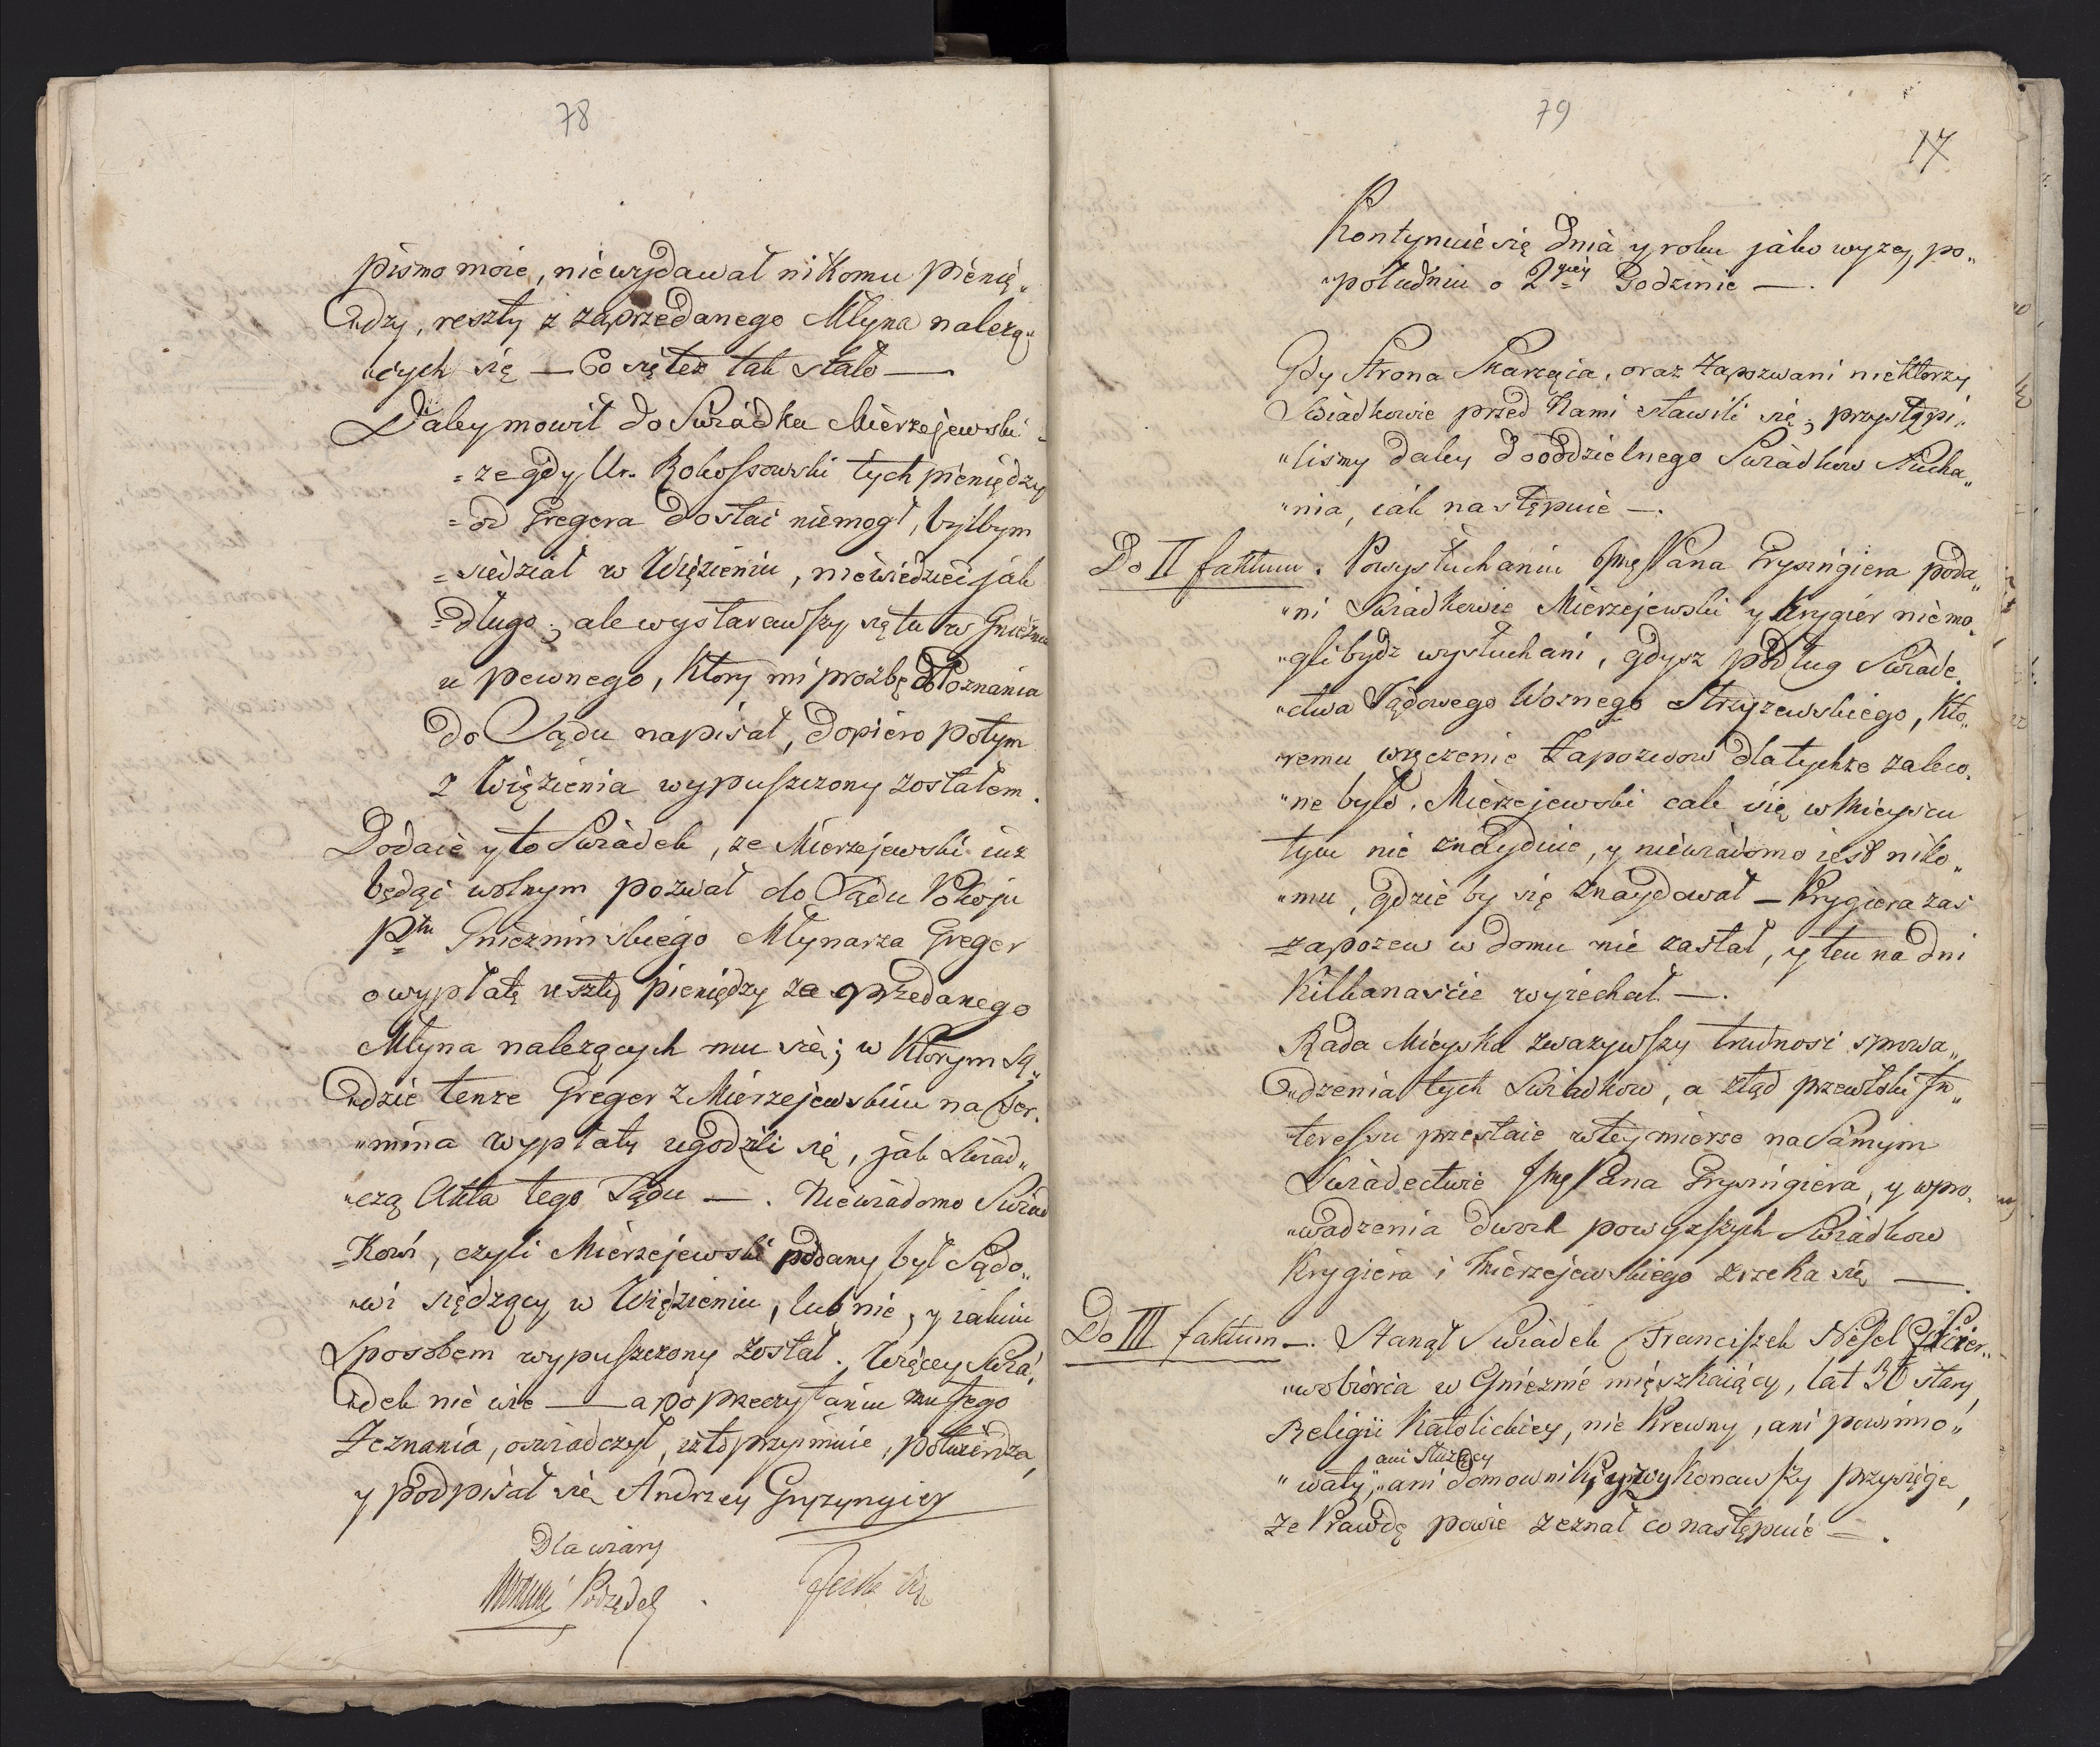 78
pismo moie, nie wydawał nikomu pienię„
„dzy, reszty z zaprzedanego Młyna należą„
„cych się — Co się też tak stało —
Daley mowił do Swiadka Mierzejewski
= ze gdy Ur. Rokossowski tych pieniędzy
= od Gregera dostać niemogł, byłbym
= siedział w Więzieniu, niewiedzieć jak
= długo; ale wystarawszy się tu w Gnieźnie
u pewnego, Który mi prozbę do Poznania
do Sądu napisał, dopiero potym
z Więzienia wypuszczony zostałem.
Dodaie y to Swiadek, ze Mierzejewski iuz
będąc wolnym pozwał do Sądu Pokoju
Ptu Gniezninskiego Młynarza Greger
o wypłatę reszty pieniędzy za przedanego
Młyna nalezących mu się; w Ktorym Są„
„dzie tenze Greger z Mierzejewskim na ter„
„mina wypłaty ugodzili się, jak Swiad„
„czą Akta tego Sądu —. Niewiadomo Swiad
= Kowi, czyli Mierzejewski podany był Sądo„
„wi siędzący w Więzieniu, lub nie, y iakim
Sposobem wypuszczony został. Więcey Swia„
„dek nie wie — a po przeczytaniu mu tego
Zeznania, oswiadczył, iz to przyimuie, potwierdza,
y podpisał się Andrzey Gryzyngier
Dla wiary
79
17
Kontynuie się dnia y roku jako wyzey, po„
„południu o 2giey Godzinie —.
Gdy Strona Skarząca, oraz Zapozwani niektorzy
Swiadkowie przed Nami stawili się, przystąpi„
„lismy daley do oddzielnego Swiadkow słucha„
„nia, iak następuie —.
Do II faktum. Po wysłuchaniu Jmę Pana Gryzingiera poda„
„ni Swiadkowie Mierzejewski y Krygier niemo„
„gli bydz wysłuchani, gdysz podług Swiade„
„ctwa Sądowego Woznego Strzyzewskiego, Kto„
„remu wręczenie Zapozwow dla tychze zaleco„
„ne było, Mierzejewski cale się w Mieyscu
tym nie znayduie, y niewiadomo iest niko„
„mu, gdzie by się znaydował — Krygiera zas
zapozew w domu nie zastał, y ten na dni
Kilkanascie wyiechał —.
Rada Mieyska zwazywszy trudnosi sprowa„
„dzenia tych Swiadkow, a ztąd przewłoki In„
teressu przestaie w tey mierze na Samym
Swiadectwie Jmę Pana Gryzingiera, y wpro„
„wadzenia dwoch powyzszych Swiadkow
Krygiera i Mierzejewskiego zrzeka się —.
Do III faktum —. Stanął Swiadek Franciszek Nesel
„wobiorca w Gnieznie mięszkaiący, lat 36 stary,
Religii Katolickiey, nie Krewny, ani powinno„
ani Służący
„waty, ani domownik, y wykonawszy przysięgę,
ze Prawdę powie zeznał co następuie —.